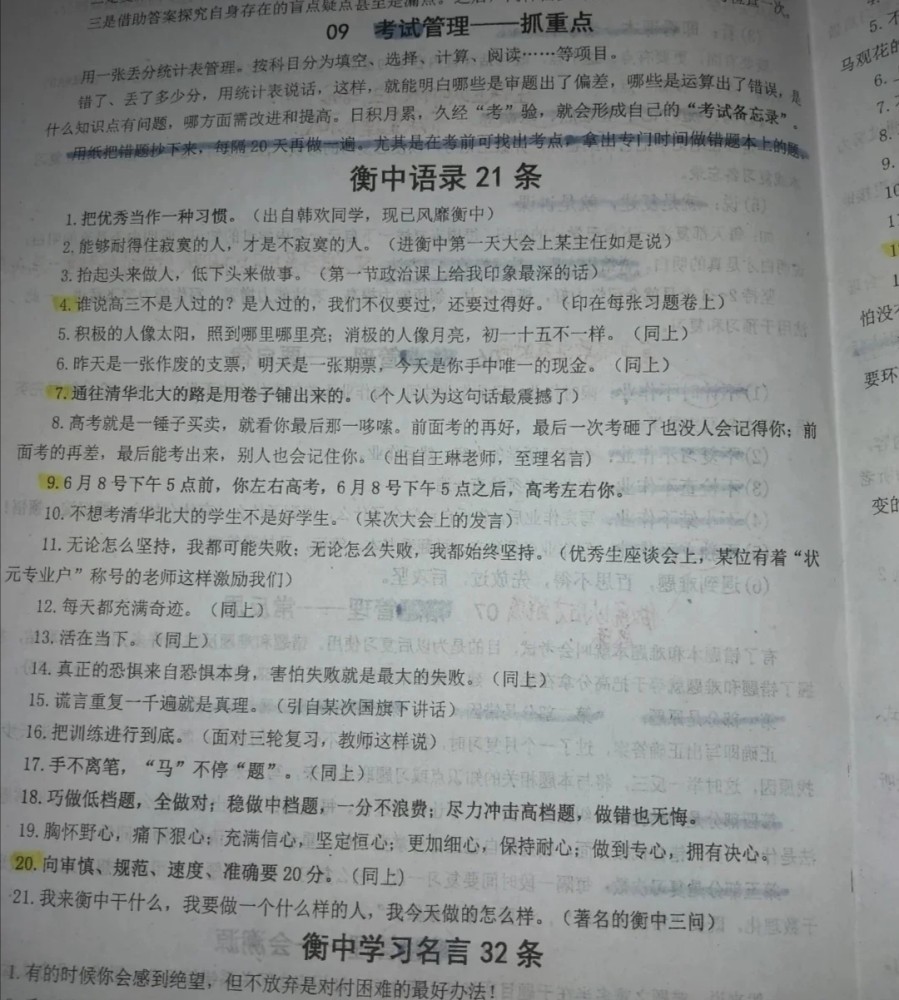 三是借助答案探究自身存在的盲点疑点甚至是漏点。
09 考试管理——抓重点
用一张丢分统计表管理。按科目分为填空、选择、计算、阅读……等项目。
错了、丢了多少分，用统计表说话，这样，就能明白哪些是审题出了偏差，哪些是运算出了错误，是
什么知识点有问题，哪方面需改进和提高。日积月累，久经“考”验，就会形成自己的“考试备忘录”。
用纸把错题抄下来，每隔20天再做一遍。尤其是在考前可找出考点，拿出专门时间做错题本上的题。
衡中语录21条
1.把优秀当作一种习惯。（出自韩欢同学，现已风靡衡中）
2.能够耐得住寂寞的人，才是不寂寞的人。（进衡中第一天大会上某主任如是说）
3.抬起头来做人，低下头来做事。（第一节政治课上给我印象最深的话）
4.谁说高三不是人过的？是人过的，我们不仅要过，还要过得好。（印在每张习题卷上）
5.积极的人像太阳，照到哪里哪里亮；消极的人像月亮，初一十五不一样。（同上）
6.昨天是一张作废的支票，明天是一张期票，今天是你手中唯一的现金。（同上）
7.通往清华北大的路是用卷子铺出来的。（个人认为这句话最震撼了）
8.高考就是一锤子买卖，就看你最后那一哆嗦。前面考的再好，最后一次考砸了也没人会记得你；前
面考的再差，最后能考出来，别人也会记住你。（出自王琳老师，至理名言）
9.6月8号下午5点前，你左右高考，6月8号下午5点之后，高考左右你。
10.不想考清华北大的学生不是好学生。（某次大会上的发言）
11.无论怎么坚持，我都可能失败；无论怎么失败，我都始终坚持。（优秀生座谈会上，某位有着“状
元专业户”称号的老师这样激励我们）
12.每天都充满奇迹。（同上）
13.活在当下。（同上）
14.真正的恐惧来自恐惧本身，害怕失败就是最大的失败。（同上）
15.谎言重复一千遍就是真理。（引自某次国旗下讲话）
16.把训练进行到底。（面对三轮复习，教师这样说）
17.手不离笔，“马”不停“题”。（同上）
18.巧做低档题，全做对；稳做中档题，一分不浪费；尽力冲击高档题，做错也无悔。
19.胸怀野心，痛下狠心；充满信心，坚定恒心；更加细心，保持耐心；做到专心，拥有决心。
20.向审慎、规范、速度、准确要20分。（同上）
21.我来衡中干什么，我要做一个什么样的人，我今天做的怎么样。（著名的衡中三问）
衡中学习名言32条
1.有的时候你会感到绝望，但不放弃是对付困难的最好办法！
5.不
马观花的
6.
7.
8.
9.
10
怕没
要环
变的